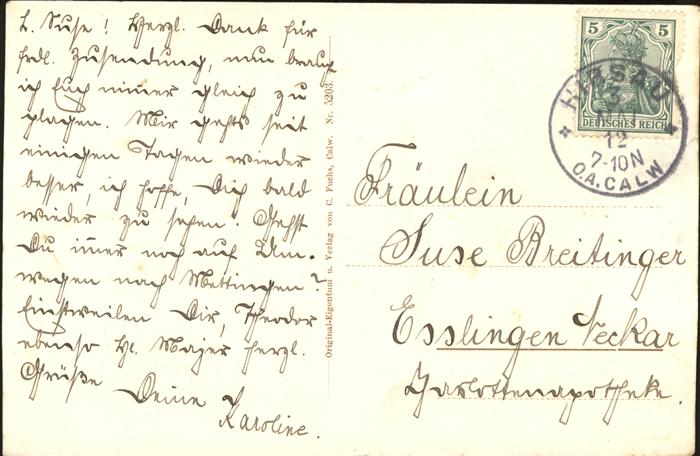 L. Suse! Herzl. Dank für
frdl. Zusendung, nun brauch
ich Euch nimmer gleich zu
plagen. Mir gehts seit
einigen Tagen wieder
besser, ich hoffe, Dich bald
wieder zu sehen. Gehst
Du im̅er noch auf
wegen nach Mettingen?
Einstweilen Dir, Theodor
ebenso H. Majer herzl.
Grüße Deine
Karoline.
Original-Eigentum u. Verlag von C. Fuchs, Calw. Nr. 5203.
5 5
DEUTSCHES REICH
HIRSAU
3
MAI
12
7-10N
O.A.CALW
Fräulein
Suse Breitinger
Esslingen Neckar
Karlottenapotheke.